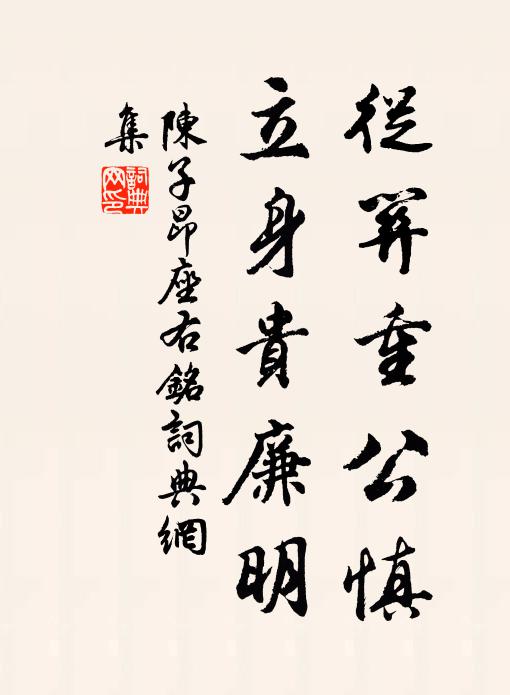 從重公慎
立身貴廉明
陳子昂座右銘詞典網
集
詞典
网印